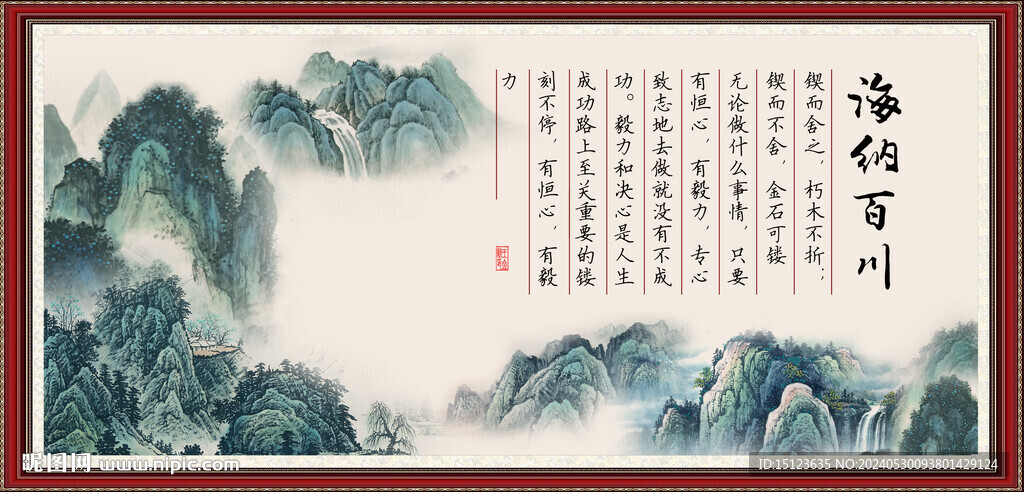 海纳百川
锲而舍之，朽木不折；
锲而不舍，金石可镂
无论做什么事情，只要
有恒心，有毅力，专心
致志地去做就没有不成
功。毅力和决心是人生
成功路上至关重要的镂
刻不停，有恒心，有毅
力
昵图网 www.nipic.com
ID:15123635 NO:20240530093801429124